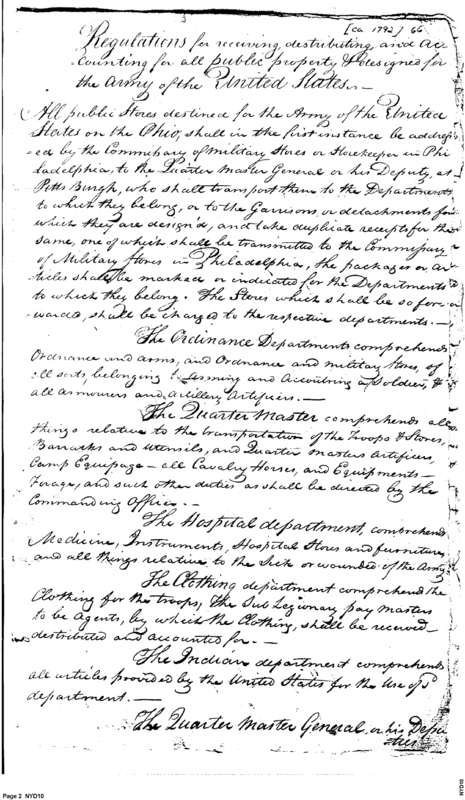 [ca 1792] 66
Regulations for receiving, destributing, and Ac-
counting for all public property & designed for
the Army of the United States.—
All public Stores destined for the Army of the United
States on the Ohio, shall in the first instance be address-
ed by the Commissary of Military Stores or Storekeeper in Phi-
ladelphia, to the Quarter Master General or his Deputy, at
Pitts Burgh, who shall transport them to the Departments
to which they belong, or to the Garrisons, or detachments for
which they are design'd, and take duplicate receipts for the
same, one of which shall be transmitted to the Commissary
of Military Stores in Philadelphia, the packages or ar-
ticles shall be marked or indicated for the Departments
to which they belong. The Stores which shall be so for-
warded, shall be charged to the respective departments.—
The Ordinance Departments comprehends
Ordnance and arms, and Ordnance and military Stores, of
all sorts, belonging to arming and Accoutring a Soldier, &
all armourers and Artillery Artificers.—
The Quarter Master comprehends all
things relative to the transportation of the Troops & Stores,
Barracks and utensils, and Quarter masters Artificers,
Camp Equipage — all Cavalry Horses, and Equipments —
Forage, and such other duties as shall be directed by the
Commanding Officer.—
The Hospital department, comprehends
Medicine, Instruments, Hospital Stores and furniture,
and all things relative to the Sick or wounded of the Army
The Clothing department comprehend the
Clothing for the troops, The Sub Legionary pay masters
to be Agents, by which the Clothing, shall be received —
distributed and accounted for.—
The Indian department comprehends
all articles provided by the United States for the Use of sd
department.—
The Quarter Master General, or his Depu-
ties
Page 2 NYD10
NYD10